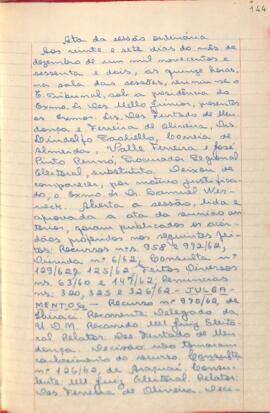 144
Ata da sessão ordinária
Aos vinte e sete dias do mês de
dezembro de um mil novecentos e
sessenta e dois, às quinze horas,
na sala das sessões, reuniu-se o
E. Tribunal, sob a presidência do
Exmo. Sr. Des. Mello Junior, presentes
os Exmos. Srs. Des. Furtado de Men-
donça e Ferreira de Oliveira, Drs.
Lindolfo Paoliello, Correia de
Almeida, Valle Ferreira e José
Pinto Renno, Procurador Regional
Eleitoral, substituto. Deixou de
comparecer, por motivo justifica-
do, o Exmo. Sr. Dr. Samuel Wer-
neck. Aberta a sessão, lida e
aprovada a ata da reunião an-
terior, foram publicados os acór-
dãos proferidos nos seguintes fei-
tos: Recursos nrs. 958 e 972/62,
Dúvida nº 6/62, Consulta nº
129/62 e 125/62, Feitos Diversos
nrs. 63/60 e 147/62, Denúncias
nrs. 320, 325 e 326/62 - JULGA-
MENTOS - Recurso nº 970/62, de
Recorrente: Delegado da
U.D.N. Recorrido: MM. Juiz Eleito-
ral. Relator: Des. Furtado de Men-
donça. Decisão: não tomaram
conhecimento do recurso. Consulta
nº 126/62, de Araçuaí. Consu-
lente: MM. Juiz Eleitoral. Relator:
Des. Ferreira de Oliveira. Deci-